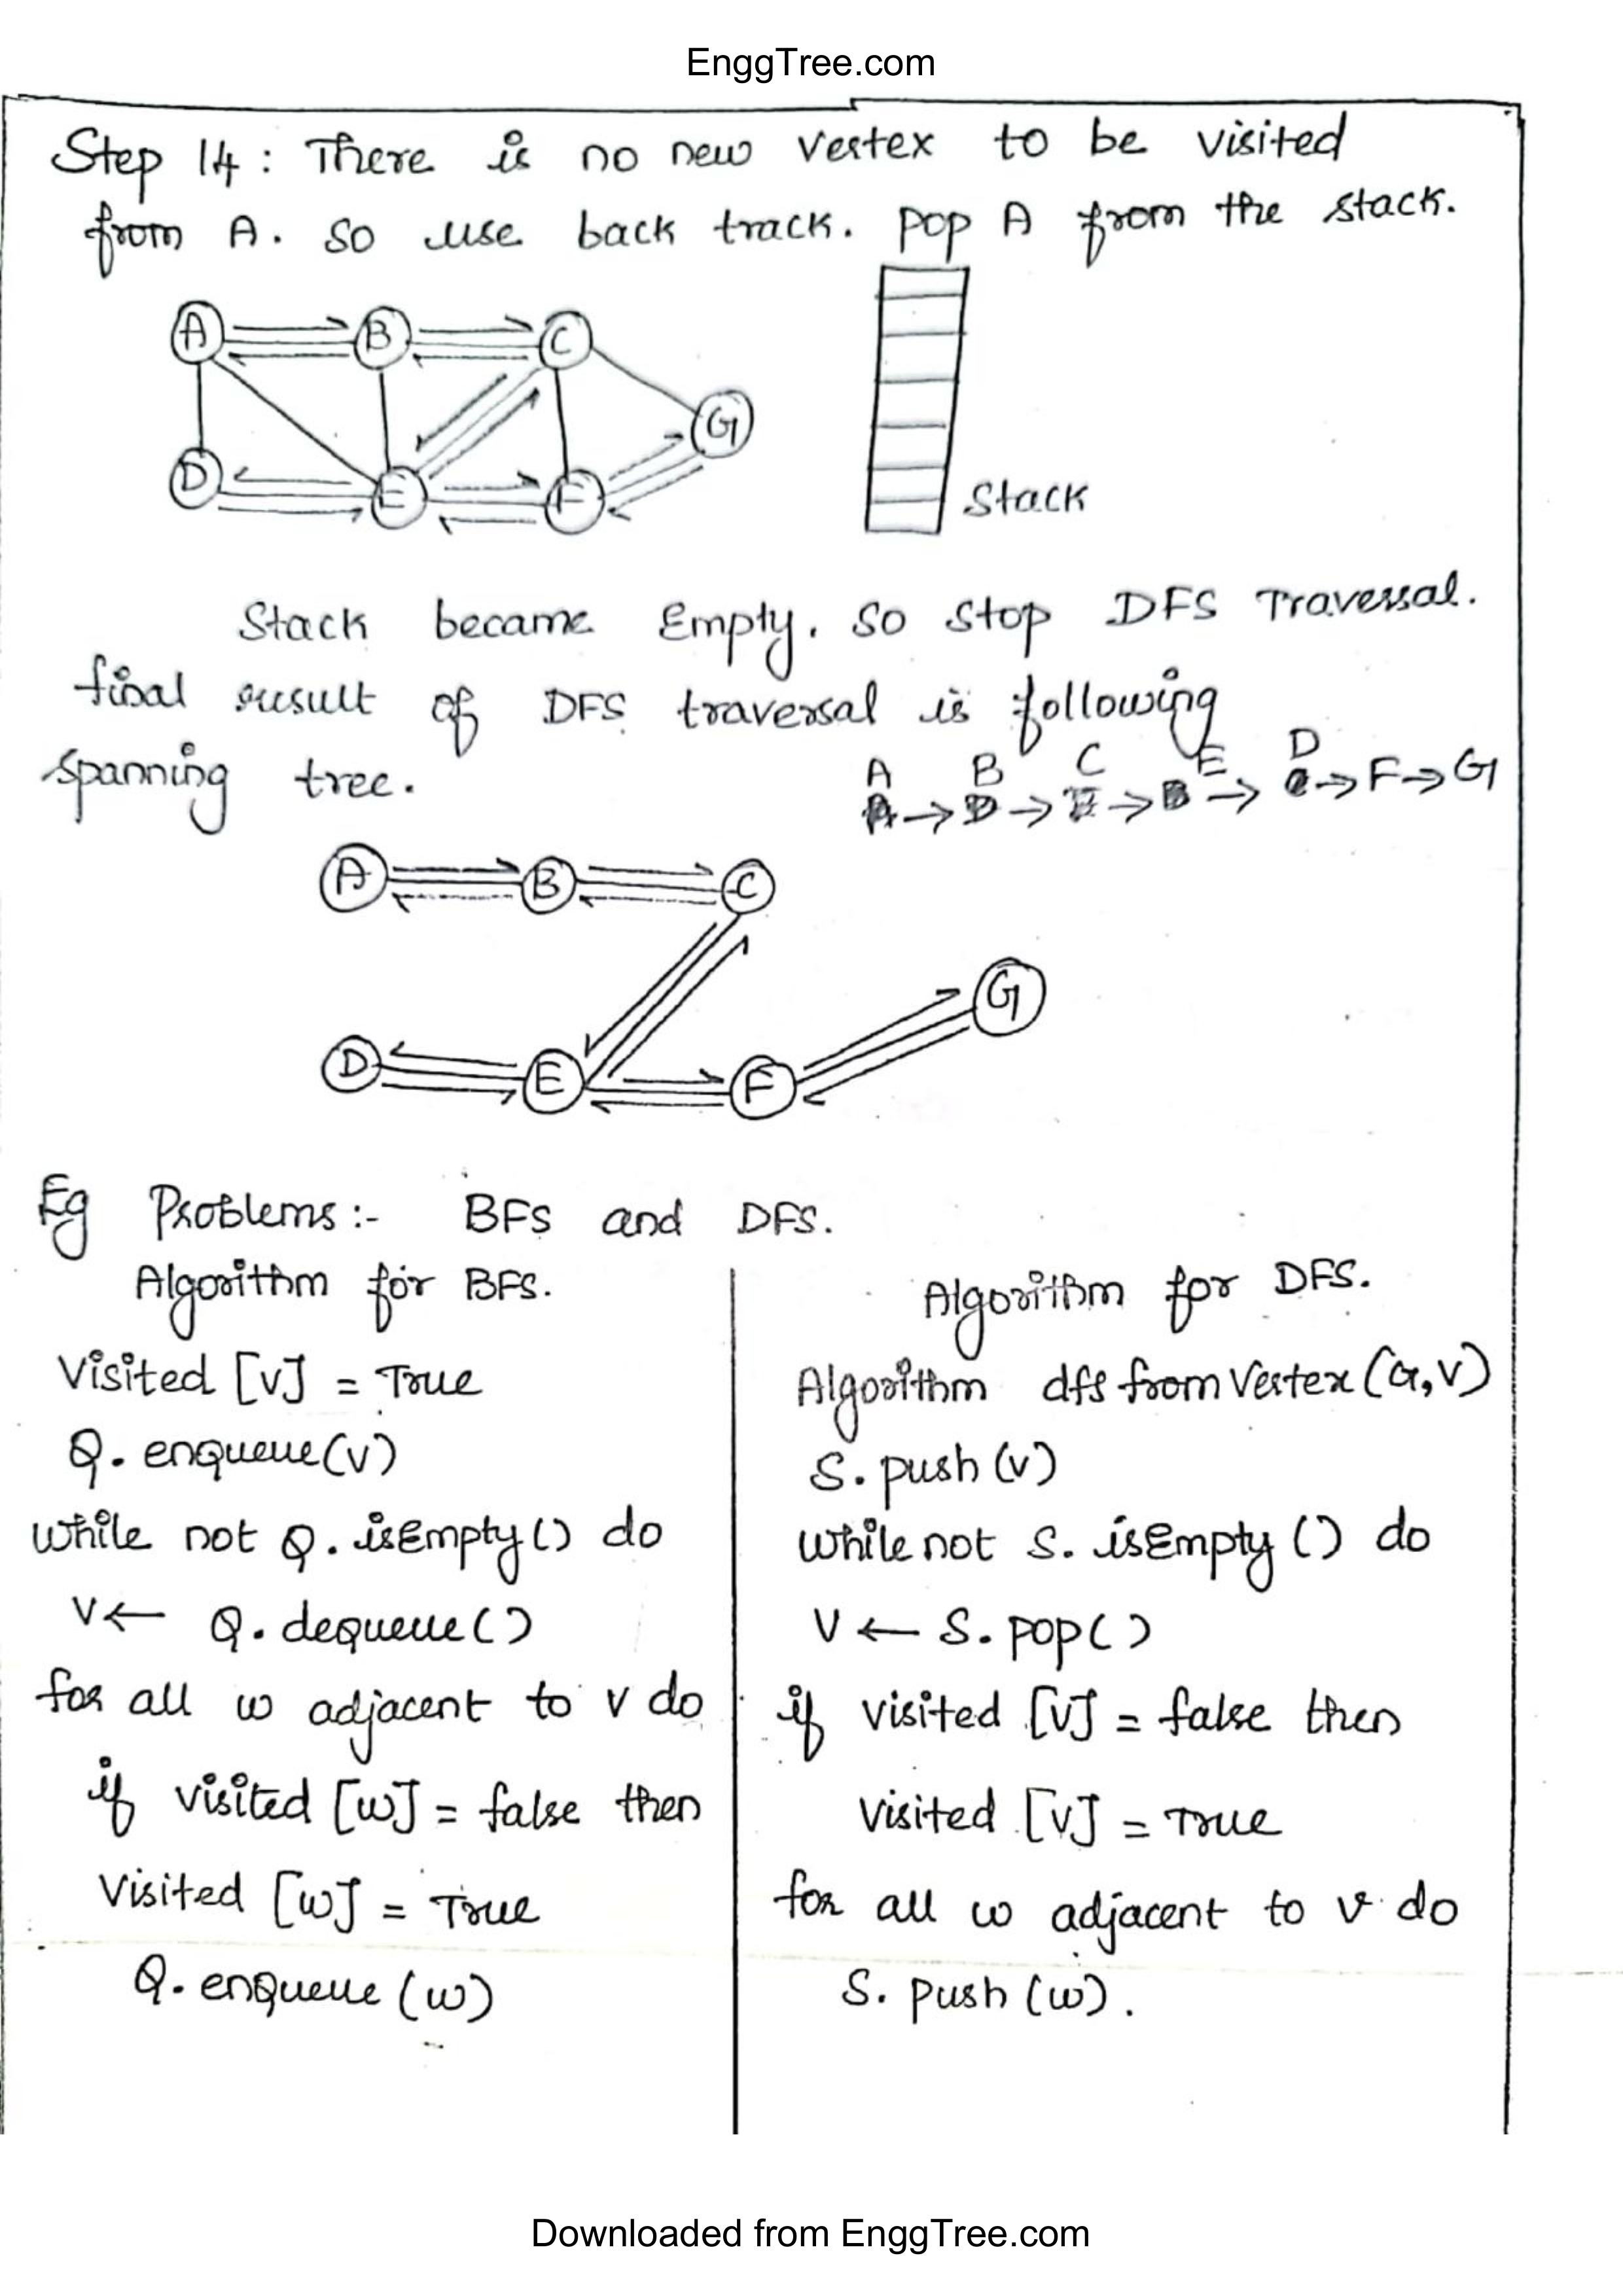 EnggTree.com
Step 14 : There is no new vertex to be visited
from A. so use back track. pop A from the stack.
A B C
G
D E F
Stack
Stack became Empty. so stop DFS Traversal.
final result of DFS traversal is following
spanning tree.
A B C E D
→ → → → → F → G
A B C
G
D E F
Eg Problems :- BFS and DFS.
Algorithm for BFS.
Visited [v] = True
Q. enqueue(v)
while not Q. isEmpty() do
v ← Q. dequeue()
for all w adjacent to v do
if visited [w] = false then
Visited [w] = True
Q. enqueue (w)
Algorithm for DFS.
Algorithm dfs from Vertex (G,V)
S. push (v)
while not S. isEmpty () do
V ← S. pop()
if visited [v] = false then
visited [v] = True
for all w adjacent to v do
S. push (w).
Downloaded from EnggTree.com